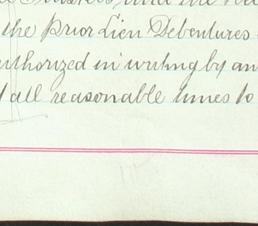 the Prior Lien Debentures
authorized in writing by an
all reasonable times to